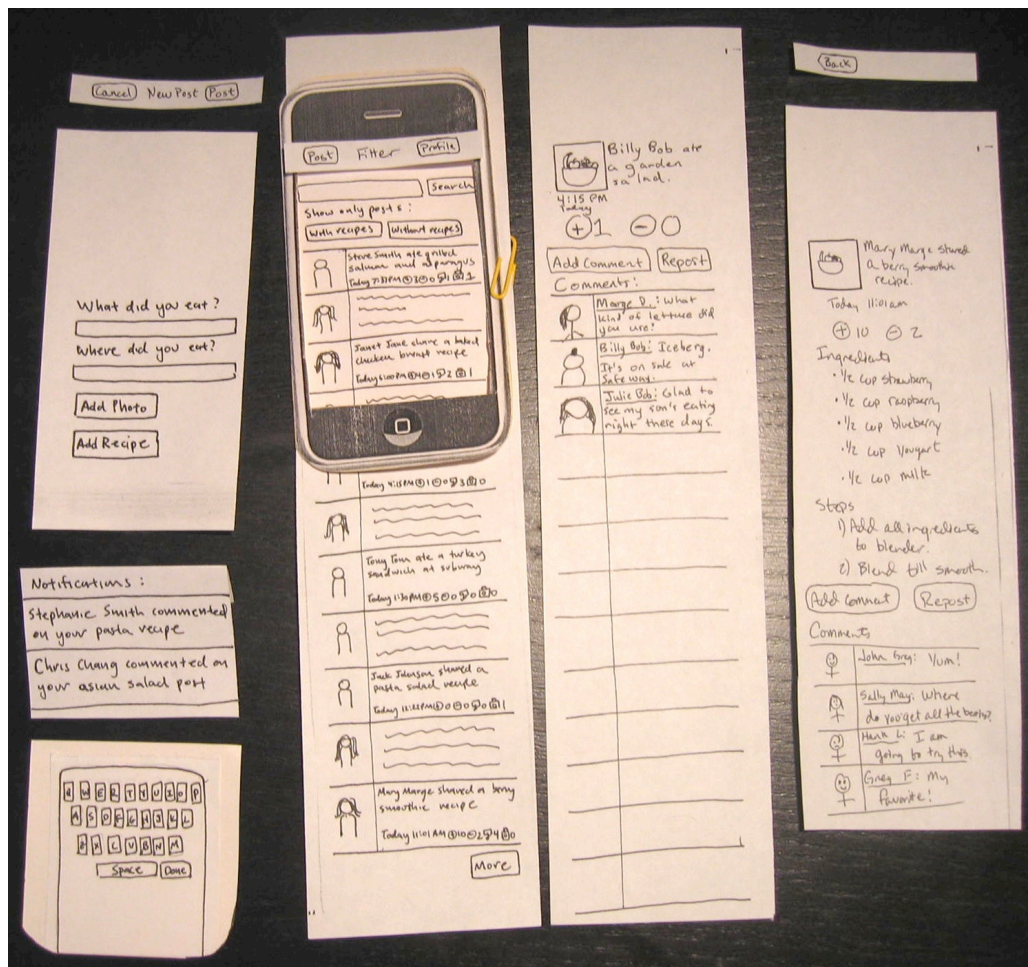 Cancel New Post Post
What did you eat?
Where did you eat?
Add Photo
Add Recipe
Notifications:
Stephanie Smith commented
on your pasta recipe
Chris Chang commented on
your asian salad post
Q W E R T Y U I O P
A S D F G H J K L
Z X C V B N M
Space Done
Post Filter Profile
Search
Show only posts:
With recipes Without recipes
Steve Smith ate grilled
salmon and asparagus
Today 7:31PM + 3 - 0 1 1
Janet Jane share a baked
chicken breast recipe
Today 6:00PM + 4 - 1 2 1
Today 4:15PM + 1 - 0 3 0
Tony Tom ate a turkey
sandwich at subway
Today 1:30PM + 5 - 0 0 0
Jack Johnson shared a
pasta salad recipe
Today 12:22PM + 0 - 0 0 1
Mary Marge shared a berry
smoothie recipe
Today 11:01AM + 10 - 2 4 0
More
Billy Bob ate
a garden
salad.
4:15 PM
Today
+ 1 - 0
Add Comment Repost
Comments:
Marge D.: What
kind of lettuce did
you use?
Billy Bob: Iceberg.
It's on sale at
Safeway.
Julie Bob: Glad to
see my son's eating
right these days.
Back
Mary Marge shared
a berry smoothie
recipe.
Today 11:01am
+ 10 - 2
Ingredients
• 1/2 cup strawberry
• 1/2 cup raspberry
• 1/2 cup blueberry
• 1/2 cup Yougart
• 1/2 cup milk
Steps
1) Add all ingredients
to blender.
2) Blend till smooth.
Add Comment Repost
Comments
John Greg: Yum!
Sally May: Where
do you get all the berries?
Hank Li: I am
going to try this.
Greg F: My
favorite!